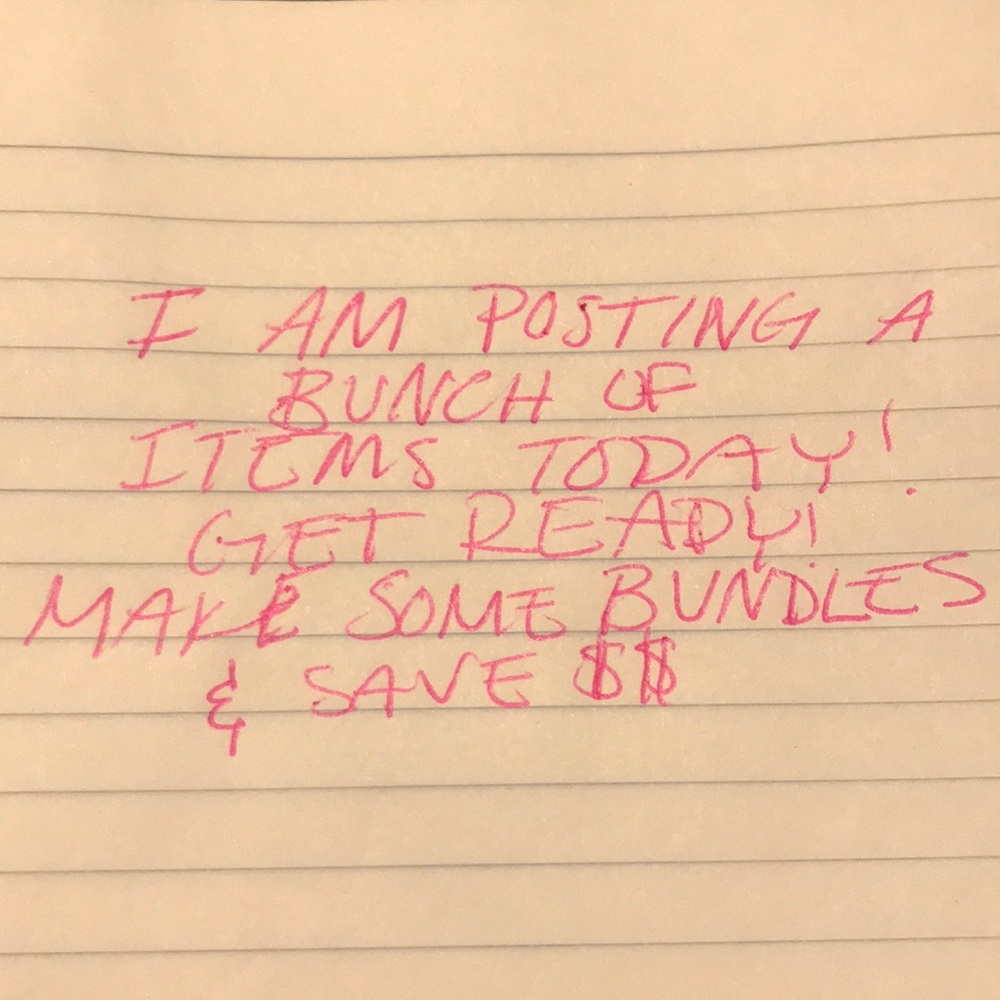 I AM POSTING A
BUNCH OF
ITEMS TODAY!
GET READY!
MAKE SOME BUNDLES
& SAVE $$